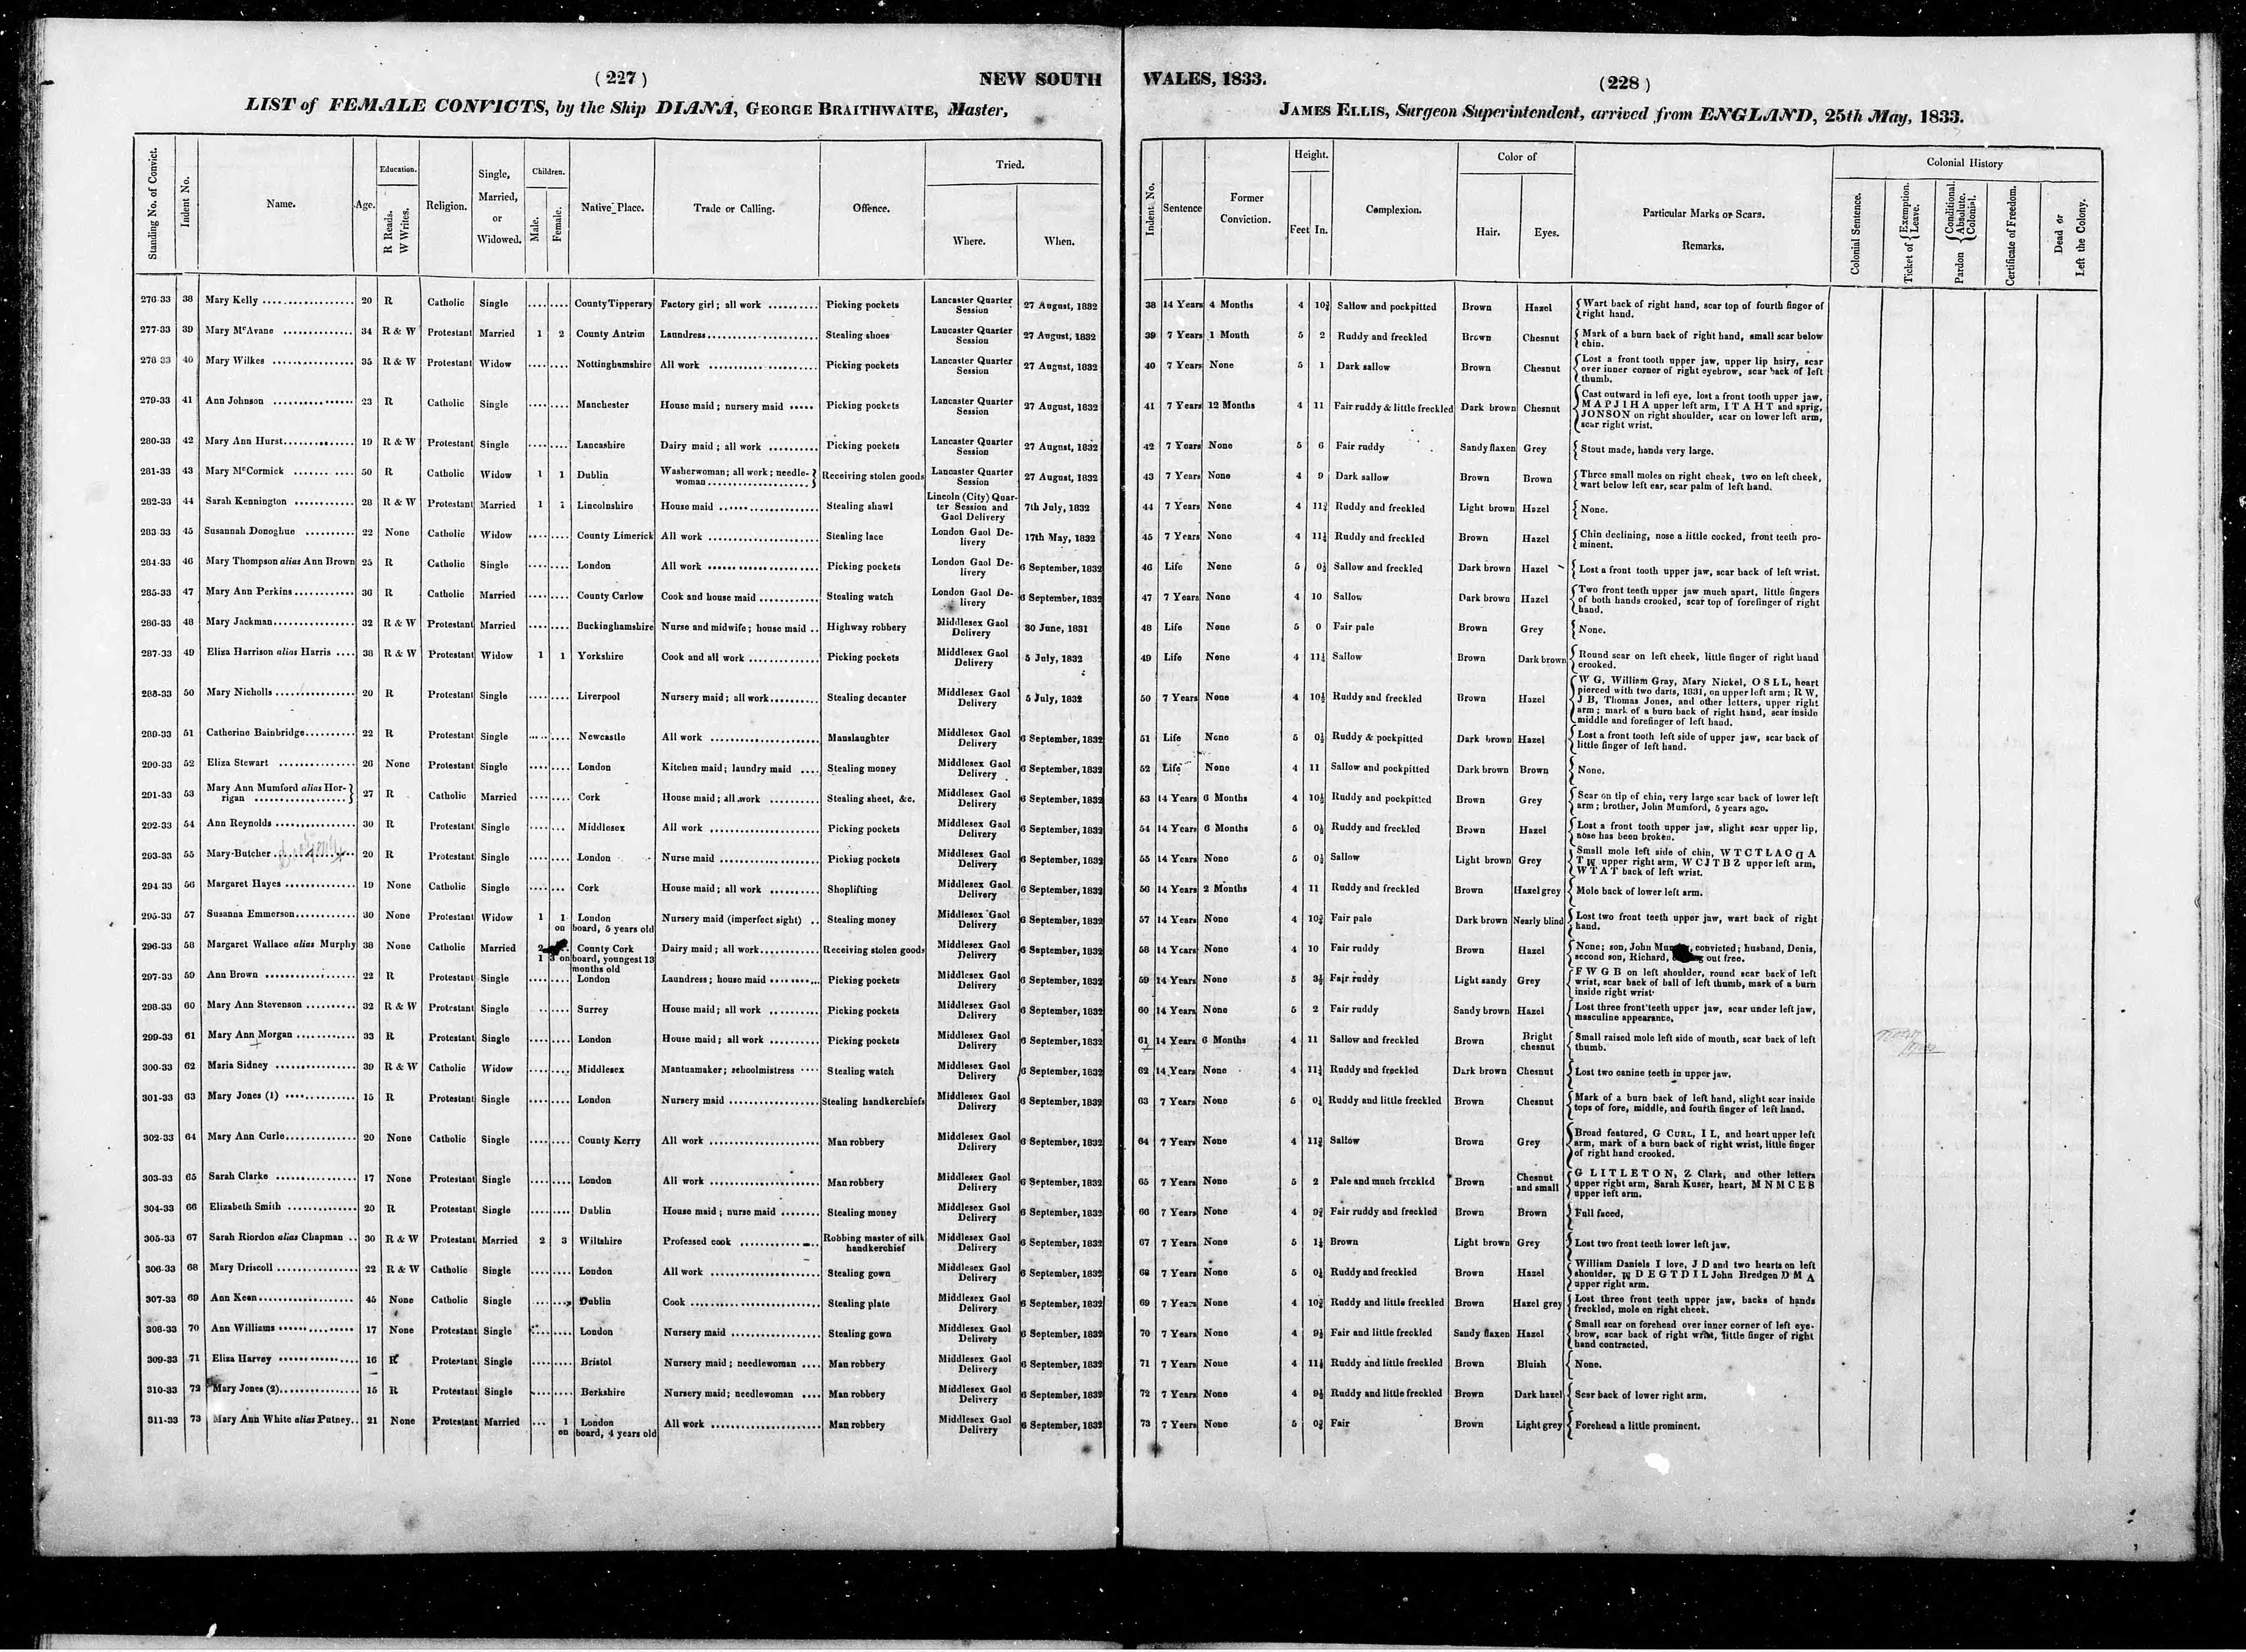 ( 227 )
NEW SOUTH
LIST of FEMALE CONVICTS, by the Ship DIANA, GEORGE BRAITHWAITE, Master,
Standing No. of Convict. Indent No. Name. Age. Education. R Reads. W Writes. Religion. Single, Married, or Widowed. Children. Male. Female. Native Place. Trade or Calling. Offence. Tried. Where. When.
276-33 38 Mary Kelly 20 R Catholic Single County Tipperary Factory girl; all work Picking pockets Lancaster Quarter Session 27 August, 1832
277-33 39 Mary McAvane 34 R & W Protestant Married 1 2 County Antrim Laundress Stealing shoes Lancaster Quarter Session 27 August, 1832
278 33 40 Mary Wilkes 35 R & W Protestant Widow Nottinghamshire All work Picking pockets Lancaster Quarter Session 27 August, 1832
279-33 41 Ann Johnson 23 R Catholic Single Manchester House maid; nursery maid Picking pockets Lancaster Quarter Session 27 August, 1832
280-33 42 Mary Ann Hurst 19 R & W Protestant Single Lancashire Dairy maid; all work Picking pockets Lancaster Quarter Session 27 August, 1832
281-33 43 Mary McCormick 50 R Catholic Widow 1 1 Dublin Washerwoman; all work; needle-woman Receiving stolen goods Lancaster Quarter Session 27 August, 1832
282-33 44 Sarah Kennington 28 R & W Protestant Married 1 1 Lincolnshire House maid Stealing shawl Lincoln (City) Quarter Session and Gaol Delivery 7th July, 1832
283 33 45 Susannah Donoghue 22 None Catholic Widow County Limerick All work Stealing lace London Gaol Delivery 17th May, 1832
284-33 46 Mary Thompson alias Ann Brown 25 R Catholic Single London All work Picking pockets London Gaol Delivery 6 September, 1832
285-33 47 Mary Ann Perkins 36 R Catholic Married County Carlow Cook and house maid Stealing watch London Gaol Delivery 6 September, 1832
286-33 48 Mary Jackman 32 R & W Protestant Married Buckinghamshire Nurse and midwife; house maid Highway robbery Middlesex Gaol Delivery 30 June, 1831
287-33 49 Eliza Harrison alias Harris 38 R & W Protestant Widow 1 1 Yorkshire Cook and all work Picking pockets Middlesex Gaol Delivery 5 July, 1832
288-33 50 Mary Nicholls 20 R Protestant Single Liverpool Nursery maid; all work Stealing decanter Middlesex Gaol Delivery 5 July, 1832
289-33 51 Catherine Bainbridge 22 R Protestant Single Newcastle All work Manslaughter Middlesex Gaol Delivery 6 September, 1832
290-33 52 Eliza Stewart 26 None Protestant Single London Kitchen maid; laundry maid Stealing money Middlesex Gaol Delivery 6 September, 1832
291-33 53 Mary Ann Mumford alias Horrigan 27 R Catholic Married Cork House maid; all work Stealing sheet, &c. Middlesex Gaol Delivery 6 September, 1832
292-33 54 Ann Reynolds 30 R Protestant Single Middlesex All work Picking pockets Middlesex Gaol Delivery 6 September, 1832
293-33 55 Mary-Butcher 20 R Protestant Single London Nurse maid Picking pockets Middlesex Gaol Delivery 6 September, 1832
294 33 56 Margaret Hayes 19 None Catholic Single Cork House maid; all work Shoplifting Middlesex Gaol Delivery 6 September, 1832
295-33 57 Susanna Emmerson 30 None Protestant Widow 1 1 on London board, 5 years old Nursery maid (imperfect sight) Stealing money Middlesex Gaol Delivery 6 September, 1832
296-33 58 Margaret Wallace alias Murphy 38 None Catholic Married 2 1 3 on County Cork board, youngest 13 months old Dairy maid; all work Receiving stolen goods Middlesex Gaol Delivery 6 September, 1832
297-33 59 Ann Brown 22 R Protestant Single London Laundress; house maid Picking pockets Middlesex Gaol Delivery 6 September, 1832
298-33 60 Mary Ann Stevenson 32 R & W Protestant Single Surrey House maid; all work Picking pockets Middlesex Gaol Delivery 6 September, 1832
299-33 61 Mary Ann Morgan 33 R Protestant Single London House maid; all work Picking pockets Middlesex Gaol Delivery 6 September, 1832
300-33 62 Maria Sidney 39 R & W Catholic Widow Middlesex Mantuamaker; schoolmistress Stealing watch Middlesex Gaol Delivery 6 September, 1832
301-33 63 Mary Jones (1) 15 R Protestant Single London Nursery maid Stealing handkerchiefs Middlesex Gaol Delivery 6 September, 1832
302-33 64 Mary Ann Curle 20 None Catholic Single County Kerry All work Man robbery Middlesex Gaol Delivery 6 September, 1832
303-33 65 Sarah Clarke 17 None Protestant Single London All work Man robbery Middlesex Gaol Delivery 6 September, 1832
304-33 66 Elizabeth Smith 20 R Protestant Single Dublin House maid; nurse maid Stealing money Middlesex Gaol Delivery 6 September, 1832
305-33 67 Sarah Riordon alias Chapman 30 R & W Protestant Married 2 3 Wiltshire Professed cook Robbing master of silk handkerchief Middlesex Gaol Delivery 6 September, 1832
306-33 68 Mary Driscoll 22 R & W Catholic Single London All work Stealing gown Middlesex Gaol Delivery 6 September, 1832
307-33 69 Ann Keen 45 None Catholic Single Dublin Cook Stealing plate Middlesex Gaol Delivery 6 September, 1832
308-33 70 Ann Williams 17 None Protestant Single London Nursery maid Stealing gown Middlesex Gaol Delivery 6 September, 1832
309-33 71 Eliza Harvey 16 R Protestant Single Bristol Nursery maid; needlewoman Man robbery Middlesex Gaol Delivery 6 September, 1832
310-33 72 Mary Jones (2) 15 R Protestant Single Berkshire Nursery maid; needlewoman Man robbery Middlesex Gaol Delivery 6 September, 1832
311-33 73 Mary Ann White alias Putney 21 None Protestant Married 1 on London board, 4 years old All work Man robbery Middlesex Gaol Delivery 6 September, 1832
WALES, 1833.
( 228 )
JAMES ELLIS, Surgeon Superintendent, arrived from ENGLAND, 25th May, 1833.
Indent No. Sentence Former Conviction. Height. Feet In. Complexion. Color of Hair. Eyes. Particular Marks or Scars. Remarks. Colonial History Colonial Sentence. Ticket of { Exemption. Leave. Pardon { Conditional. Absolute. Colonial. Certificate of Freedom. Dead or Left the Colony.
38 14 Years 4 Months 4 10¾ Sallow and pockpitted Brown Hazel Wart back of right hand, scar top of fourth finger of right hand.
39 7 Years 1 Month 5 2 Ruddy and freckled Brown Chesnut Mark of a burn back of right hand, small scar below chin.
40 7 Years None 5 1 Dark sallow Brown Chesnut Lost a front tooth upper jaw, upper lip hairy, scar over inner corner of right eyebrow, scar back of left thumb.
41 7 Years 12 Months 4 11 Fair ruddy & little freckled Dark brown Chesnut Cast outward in left eye, lost a front tooth upper jaw, M A P J I H A upper left arm, I T A H T and sprig, JONSON on right shoulder, scar on lower left arm, scar right wrist.
42 7 Years None 5 6 Fair ruddy Sandy flaxen Grey Stout made, hands very large.
43 7 Years None 4 9 Dark sallow Brown Brown Three small moles on right cheek, two on left cheek, wart below left ear, scar palm of left hand.
44 7 Years None 4 11 Ruddy and freckled Light brown Hazel None.
45 7 Years None 4 11 Ruddy and freckled Brown Hazel Chin declining, nose a little cocked, front teeth prominent.
46 Life None 5 0 Sallow and freckled Dark brown Hazel Lost a front tooth upper jaw, scar back of left wrist.
47 7 Years None 4 10 Sallow Dark brown Hazel Two front teeth upper jaw much apart, little fingers of both hands crooked, scar top of forefinger of right hand.
48 Life None 5 0 Fair pale Brown Grey None.
49 Life None 4 11 Sallow Brown Dark brown Round scar on left cheek, little finger of right hand crooked.
50 7 Years None 4 10½ Ruddy and freckled Brown Hazel W G, William Gray, Mary Nickel, O S L L, heart pierced with two darts, 1831, on upper left arm; R W, J B, Thomas Jones, and other letters, upper right arm; mark of a burn back of right hand, scar inside middle and forefinger of left hand.
51 Life None 5 0½ Ruddy & pockpitted Dark brown Hazel Lost a front tooth left side of upper jaw, scar back of little finger of left hand.
52 Life None 4 11 Sallow and pockpitted Dark brown Brown None.
53 14 Years 6 Months 4 10½ Ruddy and pockpitted Brown Grey Scar on tip of chin, very large scar back of lower left arm; brother, John Mumford, 5 years ago.
54 14 Years 6 Months 5 0½ Ruddy and freckled Brown Hazel Lost a front tooth upper jaw, slight scar upper lip, nose has been broken.
55 14 Years None 5 0½ Sallow Light brown Grey Small mole left side of chin, W T C T L A C A T upper right arm, W C J T B Z upper left arm, W T A T back of left wrist.
56 14 Years 2 Months 4 11 Ruddy and freckled Brown Hazel grey Mole back of lower left arm.
57 14 Years None 4 10¾ Fair pale Dark brown Nearly blind Lost two front teeth upper jaw, wart back of right hand.
58 14 Years None 4 10 Fair ruddy Brown Hazel None; son, John convicted; husband, Denis, second son, Richard, out free.
59 14 Years None 5 3½ Fair ruddy Light sandy Grey F W G B on left shoulder, round scar back of left wrist, scar back of ball of left thumb, mark of a burn inside right wrist.
60 14 Years None 5 2 Fair ruddy Sandy brown Hazel Lost three front teeth upper jaw, scar under left jaw, masculine appearance.
61 14 Years 6 Months 4 11 Sallow and freckled Brown Bright chesnut Small raised mole left side of mouth, scar back of left thumb.
62 14 Years None 4 11½ Ruddy and freckled Dark brown Chesnut Lost two canine teeth in upper jaw.
63 7 Years None 5 0 Ruddy and little freckled Brown Chesnut Mark of a burn back of left hand, slight scar inside tops of fore, middle, and fourth finger of left hand.
64 7 Years None 4 11¾ Sallow Brown Grey Broad featured, G CURL, I L, and heart upper left arm, mark of a burn back of right wrist, little finger of right hand crooked.
65 7 Years None 5 2 Pale and much freckled Brown Chesnut and small G L I T L E T O N, Z Clark, and other letters upper right arm, Sarah Kuser, heart, M N M C E S upper left arm.
66 7 Years None 4 9¾ Fair ruddy and freckled Brown Brown Full faced.
67 7 Years None 5 1½ Brown Light brown Grey Lost two front teeth lower left jaw.
68 7 Years None 5 0 Ruddy and freckled Brown Hazel William Daniels I love, J D and two hearts on left shoulder, D E G T D I L John Bredgen D M A upper right arm.
69 7 Years None 4 10¾ Ruddy and little freckled Brown Hazel grey Lost three front teeth upper jaw, backs of hands freckled, mole on right cheek.
70 7 Years None 4 9½ Fair and little freckled Sandy flaxen Hazel Small scar on forehead over inner corner of left eyebrow, scar back of right wrist, little finger of right hand contracted.
71 7 Years None 4 11½ Ruddy and little freckled Brown Bluish None.
72 7 Years None 4 9½ Ruddy and little freckled Brown Dark hazel Scar back of lower right arm.
73 7 Years None 5 0¾ Fair Brown Light grey Forehead a little prominent.